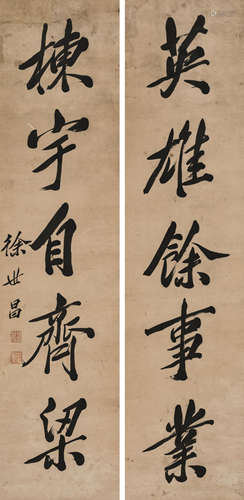 英雄餘事業
棟宇自齊梁
徐世昌